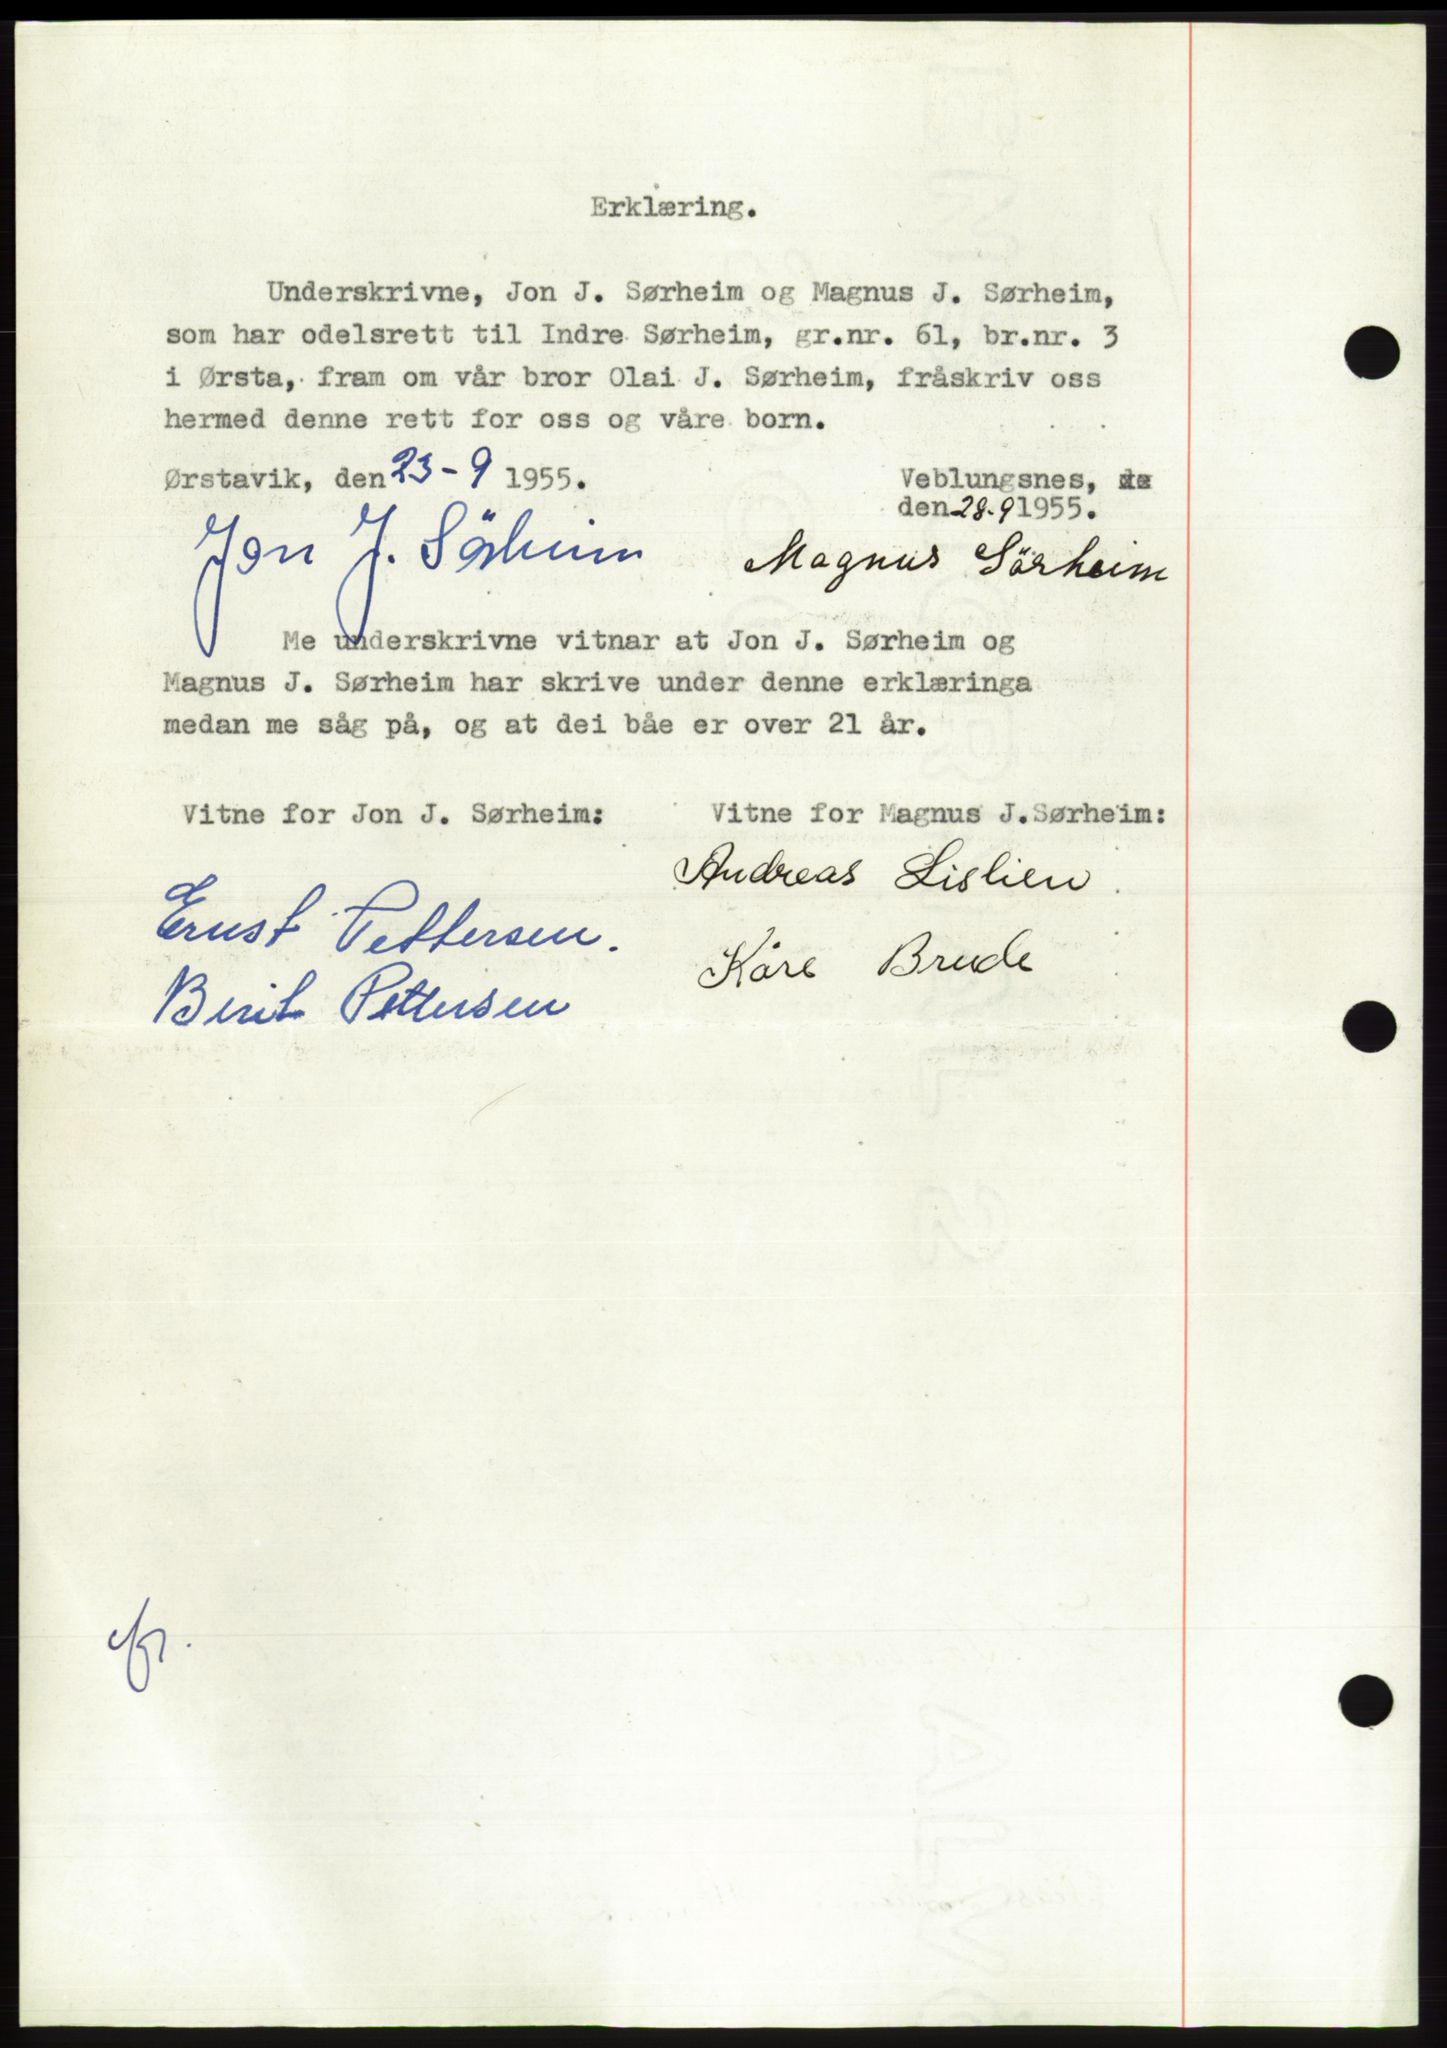 Erklæring.
Underskrivne, Jon J. Sørheim og Magnus J. Sørheim,
som har odelsrett til Indre Sørheim, gr.nr. 61, br.nr. 3
i Ørsta, fram om vår bror Olai J. Sørheim, fråskriv oss
hermed denne rett for oss og våre born.
Ørstavik, den 23-9 1955.
Veblungsnes,
den 28.9 1955.
Jon J. Sörheim
Magnus Sörheim
Me underskrivne vitnar at Jon J. Sørheim og
Magnus J. Sørheim har skrive under denne erklæringa
medan me såg på, og at dei båe er over 21 år.
Vitne for Jon J. Sørheim:
Vitne for Magnus J.Sørheim:
Andreas Lislien
Ernst Pettersen.
Kåre Brude
Berit Pettersen